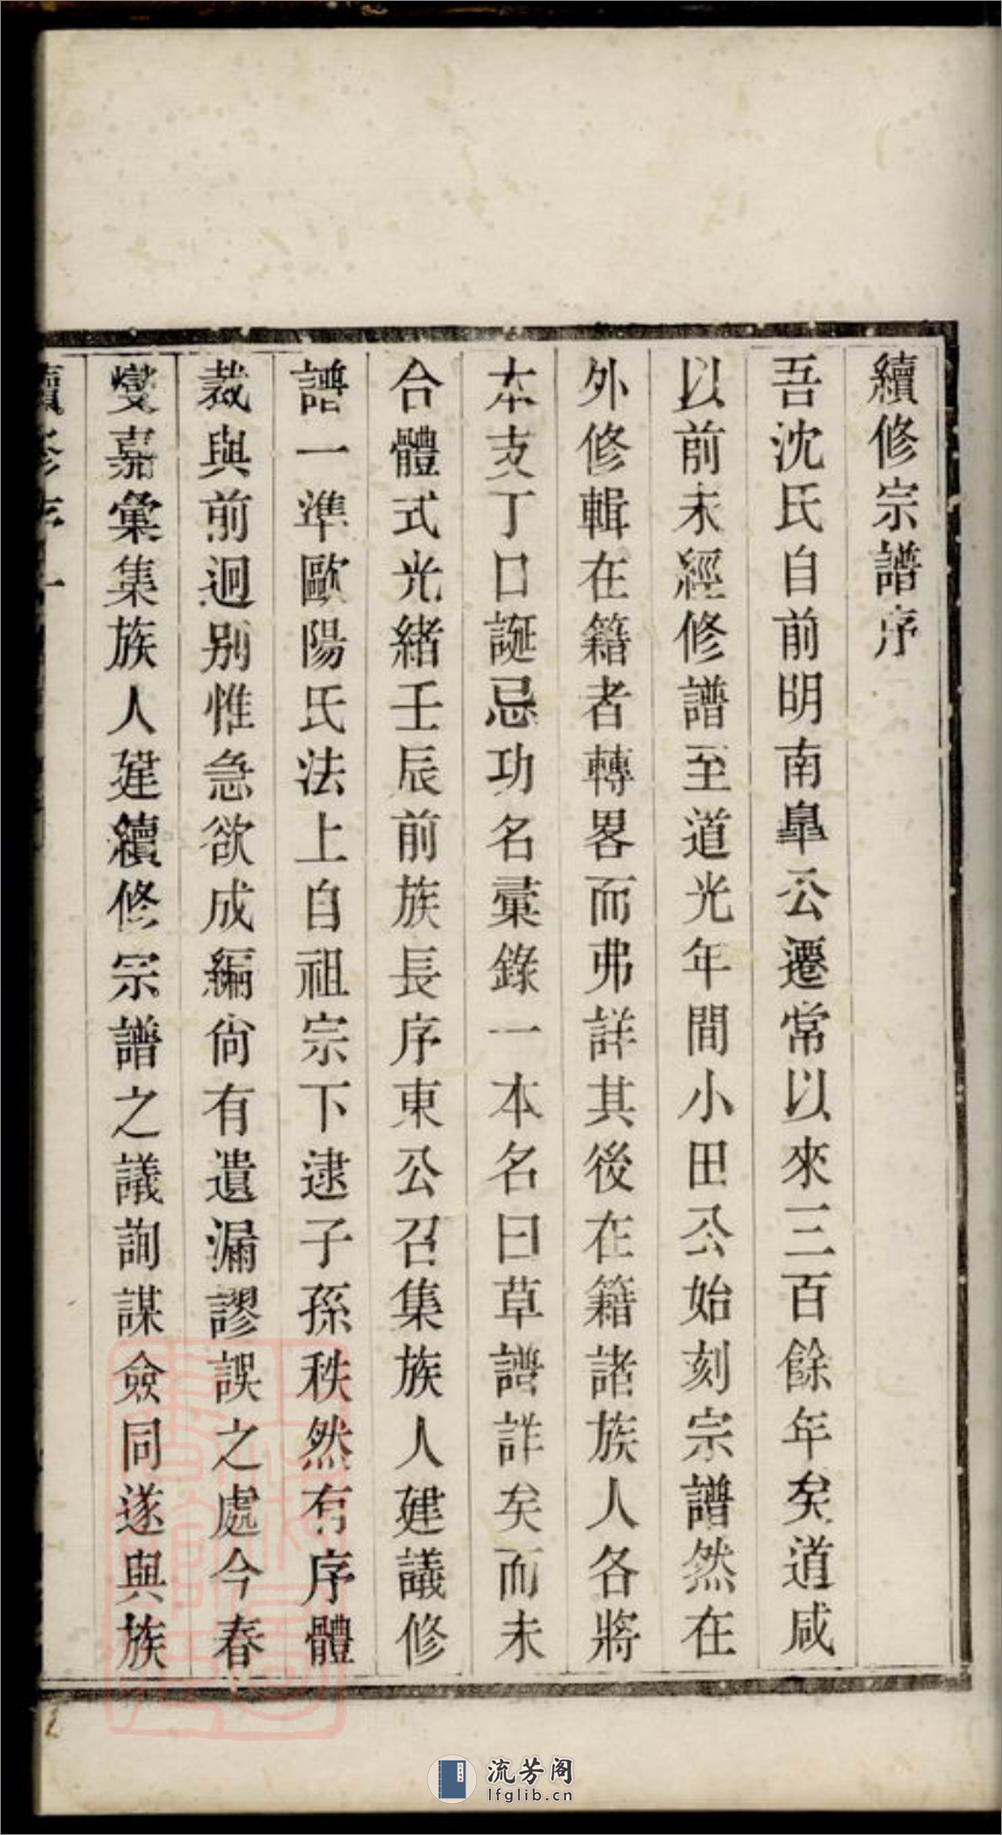 續修宗譜序
吾沈氏自前明南臯公遷常以來三百餘年矣道咸
以前未經修譜至道光年間小田公始刻宗譜然在
外修輯在籍者轉畧而弗詳其後在籍諸族人各將
本支丁口誕忌功名彙錄一本名曰草譜詳矣而未
合體式光緒壬辰前族長序東公召集族人建議修
譜一準歐陽氏法上自祖宗下逮子孫秩然有序體
裁與前迥别惟急欲成編尙有遺漏謬誤之處今春
燮嘉彙集族人建續修宗譜之議詢謀僉同遂與族
續修序一
流芳阁
lfglib.cn